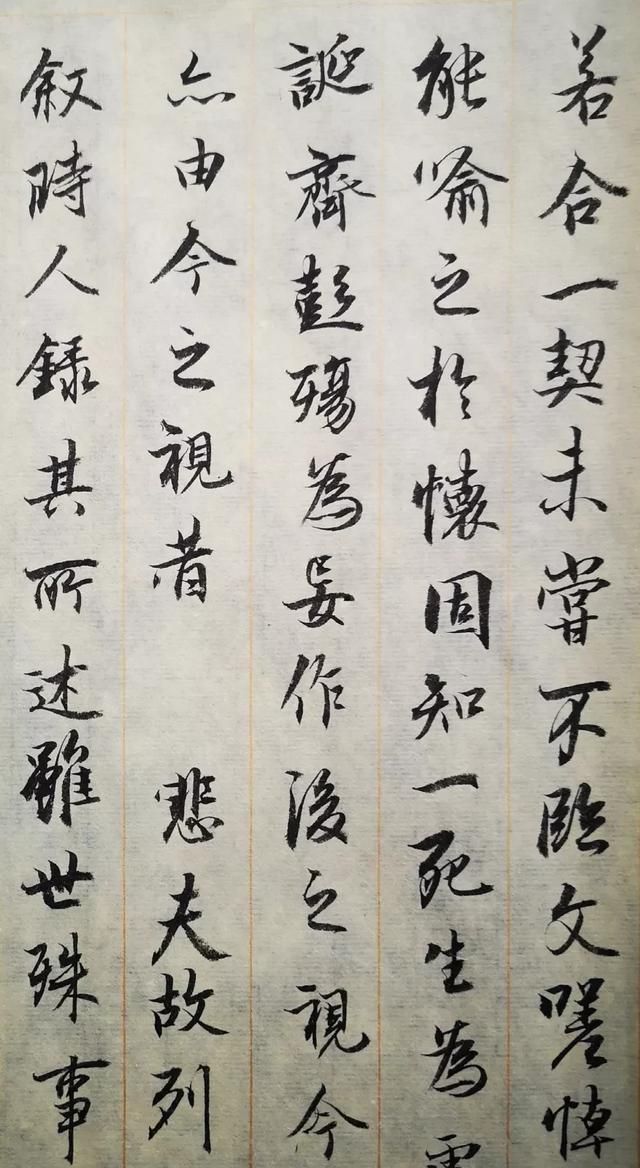 若合一契未嘗不臨文嗟悼
能喻之於懷固知一死生為
誕齊彭殤為妄作後之視今
亦由今之視昔 悲夫故列
敘時人錄其所述雖世殊事